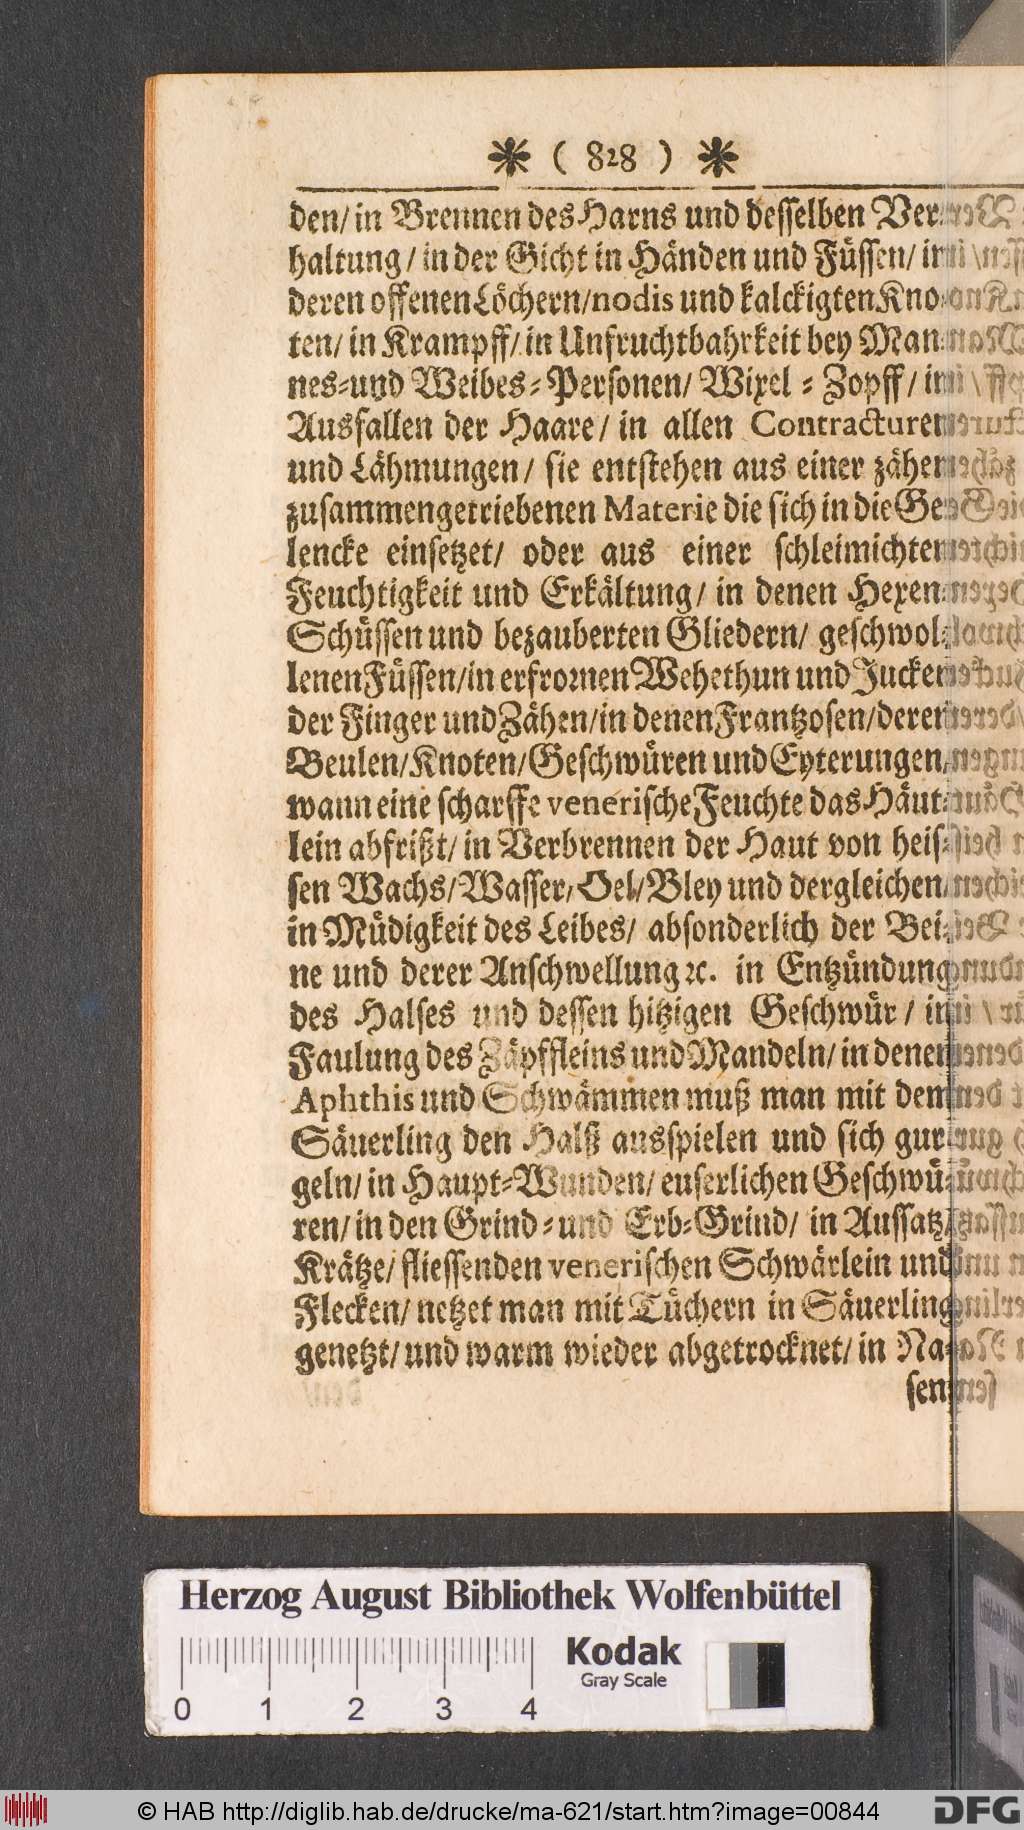 * ( 828 ) *
den/ in Brennen des Harns und desselben Ver-
haltung / in der Gicht in Händen und Füssen/ in
deren offenen Löchern/nodis und kalckigten Kno-
ten/ in Krampff/ in Unfruchtbahrkeit bey Man-
nes-und Weibes-Personen/ Wixel - Zopff / in
Ausfallen der Haare/ in allen Contracturen
und Lähmungen/ sie entstehen aus einer zähen
zusammengetriebenen Materie die sich in die Ge-
lencke einsetzet/ oder aus einer schleimichten
Feuchtigkeit und Erkältung/ in denen Hexen-
Schüssen und bezauberten Gliedern/ geschwol-
lenen Füssen/in erfrornen Wehethun und Jucken
der Finger und Zähen/in denen Frantzosen/deren
Beulen/Knoten/Geschwüren und Eyterungen/
wann eine scharffe venerische Feuchte das Häut-
lein abfrißt/ in Verbrennen der Haut von heis-
sen Wachs/Wasser/Oel/Bley und dergleichen/
in Müdigkeit des Leibes/ absonderlich der Bei-
ne und derer Anschwellung ꝛc. in Entzündung
des Halses und dessen hitzigen Geschwür / in
Faulung des Zäpffleins und Mandeln/ in denen
Aphthis und Schwämmen muß man mit dem
Säuerling den Halß ausspielen und sich gur-
geln/ in Haupt-Wunden/ euserlichen Geschwü-
ren/ in den Grind-und Erb-Grind/ in Aussatz/
Krätze/ fliessenden venerischen Schwärlein und
Flecken/ netzet man mit Tüchern in Säuerling
genetzt/ und warm wieder abgetrocknet/ in Na-
sen-
Herzog August Bibliothek Wolfenbüttel
Kodak
Gray Scale
0 1 2 3 4
© HAB http://diglib.hab.de/drucke/ma-621/start.htm?image=00844
DFG